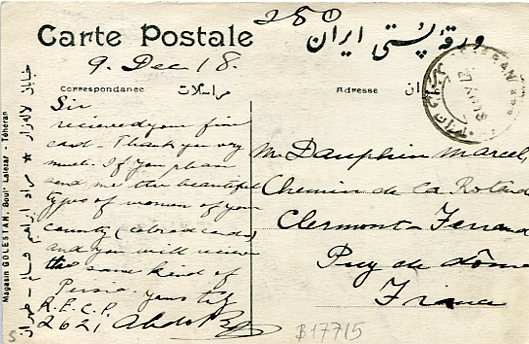 250
Carte Postale
ورقهٔ پُستی ایران
9. Dec 18.
Correspondance مراسلات
Adresse
TEHERAN
27 XII 18
Sir
recieved your fine
card - Thank you very
much. If you please
send me the beautiful
types of women of your
country (colored cards)
and you will recieve
the same kind of
Persia. yours tly
R.E.C.P.
2621
Mr Dauphin Marcel
Chemin de la Rotande
Clermont-Ferrand
Puy de dôme
France
B17715
5
Magasin GOLESTAN, Boulᵗ Lalezar - Téheran
خیابان لاله‌زار ★
طهران